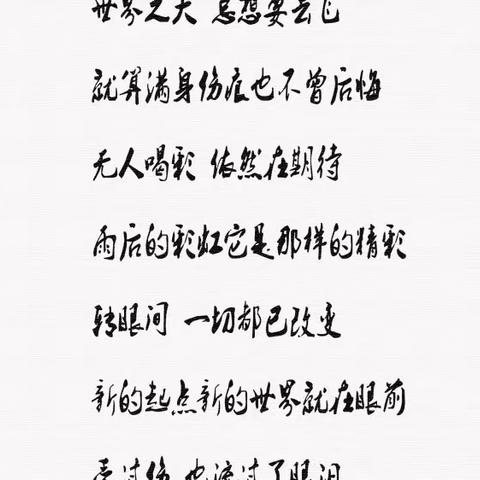 世界之大 总想要去飞
就算满身伤痕也不曾后悔
无人喝彩 依然在期待
雨后的彩虹它是那样的精彩
转眼间 一切都已改变
新的起点新的世界就在眼前
受过伤 也流过了眼泪